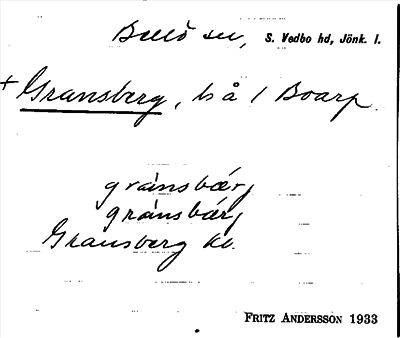 Bellö sn, S. Vedbo hd, Jönk. l.
+ Gransberg, ls å 1 Boarp.
gránsbærj
gránsbárj
Gransberg kb.
FRITZ ANDERSSON 1933